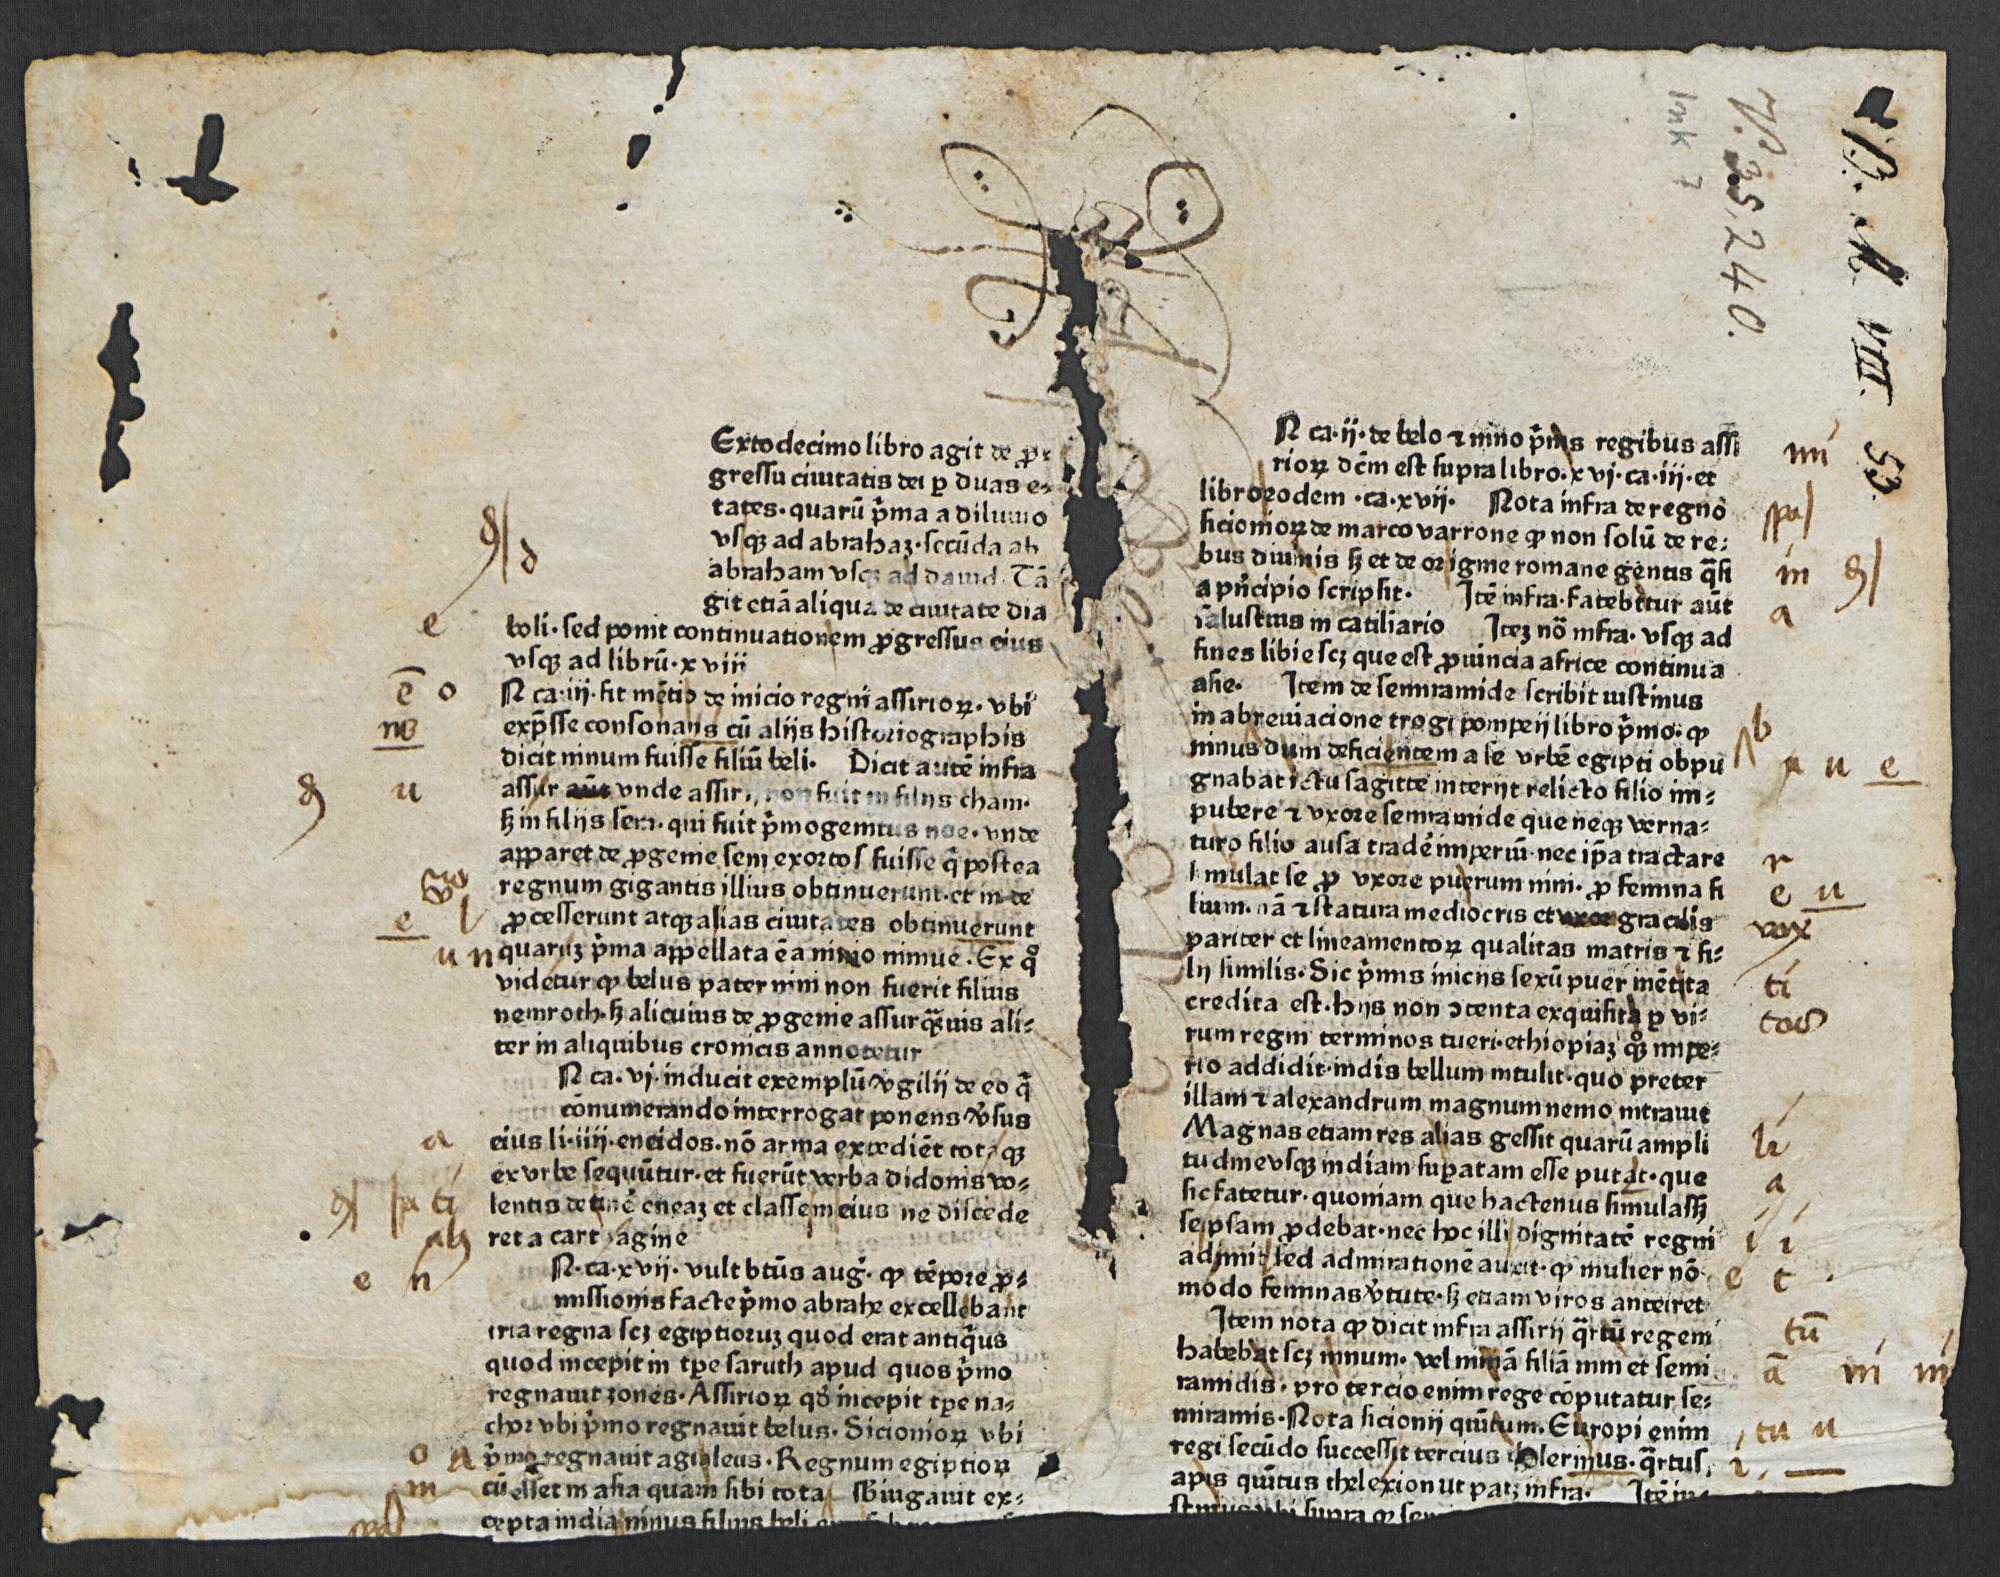 Extodecimo libro agit de ꝓ⸗
gressu ciuitatis dei ꝑ duas e⸗
tates· quarū p̄ma a diluuio
vsqꝫ ad abrahaꝫ· secūda ab
abraham vsqꝫ ad dauid. Tā
git etiā aliqua de ciuitate dia
boli· sed ponit continuationem ꝓgressus eius
vsqꝫ ad librū· xviij
N ca·iij· fit mētio de inicio regni assirioꝝ· vbi
exp̄sse consonans cū alijs historiographis
dicit ninum fuisse filiū beli· Dicit autē infra
assur aūt vnde assirij non fuit in filijs cham·
sꝫ in filijs sem· qui fuit p̄mogenitus noe· vnde
apparet de ꝓgenie sem exortos fuisse q̄ postea
regnum gigantis illius obtinuerunt· et inde
ꝓcesserunt atqꝫ alias ciuitates obtinuerunt
quaruꝫ p̄ma appellata ē a nino niniue· Ex qͦ
videtur ꝙ belus pater nini non fuerit filius
nemroth· sꝫ alicuius de ꝓgenie assur quis ali⸗
ter in aliquibus cronicis annotetur
N ca· vj· inducit exemplū v̓gilij de eo q̄
cōnumerando interrogat ponens v̓sus
eius li·iiij·eneidos· nō arma expediēt totaqꝫ
ex vrbe sequūtur· et fuerūt verba didonis vo⸗
lentis detinē eneaꝫ et classem eius ne discede
ret a cartagine
N·ca·xvij· vult btūs aug̓· ꝙ tēpore ꝓ⸗
missionis facte p̄mo abrahe excellebant
tria regna scꝫ egiptioruꝫ quod erat antiq̄us
quod incepit in tꝑe saruth apud quos p̄mo
regnauit zones· Assirioꝝ qd̓ incepit tꝑe na⸗
chor vbi p̄mo regnauit belus· Sicionioꝝ vbi
p̄mo regnauit agialeus· Regnum egiptioꝝ
cū esset in asia quam sibi tota sbiugauit ex⸗
cepta india ninus filius beli
N ca·ij· de belo ⁊ nino p̄mis regibus assi
rioꝝ dc̄m est supra libro·xvj·ca·iij·et
libro eodem ·ca·xvij· Nota infra de regno
sicionioꝝ de marco varrone ꝙ non solū de re⸗
bus diuinis sꝫ et de origine romane gentis q̄si
a p̓ncipio scripsit· Itē infra· fatebitur aūt
salustius in catiliario Iteꝫ nō infra· vsqꝫ ad
fines libie scꝫ que est ꝓuincia africe continua
asie· Item de semiramide scribit iustinus
in abreuiacione trogi pompeij libro p̄mo· ꝙ
ninus dum deficientem a se vrbē egipti obpu
gnabat ictu sagitte interijt relicto filio im⸗
pubere ⁊ vxore semiramide que neqꝫ verna⸗
turo filio ausa tradē imperiū· nec ip̄a tractare
simulat se ꝓ vxore puerum nini· ꝓ femina fi
lium· nā ⁊ statura mediocris et vxor gracilis
pariter et lineamentoꝝ qualitas matris ⁊ fi⸗
lij similis· Sic p̄mis inicijs sexū puer mētita
credita est· hijs non ɔtenta exquisita ꝑ vi⸗
rum regni terminos tueri· ethiopiaꝫ qͦꝫ impe⸗
rio addidit· indis bellum intulit· quo preter
illam ⁊ alexandrum magnum nemo intrauit
Magnas etiam res alias gessit quarū ampli
tudine vsqꝫ indiam suꝑatam esse putat· que
sic fatetur· quoniam que hactenus simulass̄
seipsam ꝓdebat· nec hoc illi dignitatē regni
adimit sed admirationē auxit· ꝙ mulier nō
modo feminas v̓tute· sꝫ etiam viros anteiret
Item nota ꝙ dicit infra assirij q̄rtū regem
habebat scꝫ ninum· vel niniā filiā nini et semi
ramidis· pro tercio enim rege cōputatur se⸗
miramis· Nota sicionij quītum· Europi enim
regi secūdo successit tercius thelernius· q̄rtus
apis quītus thelexion ut patꝫ infra· Itē iu⸗
stinus vbi supra
e
ē o
no
u
e
u n
a
sa ti
e n
o
m
ni
spa
in
a
b
a u e
r
e u
vox
ti
li
a
i i
e t
tū
ā ni ni
tu u
P. A. VIII. 53
N° 35,240.
Ink 7